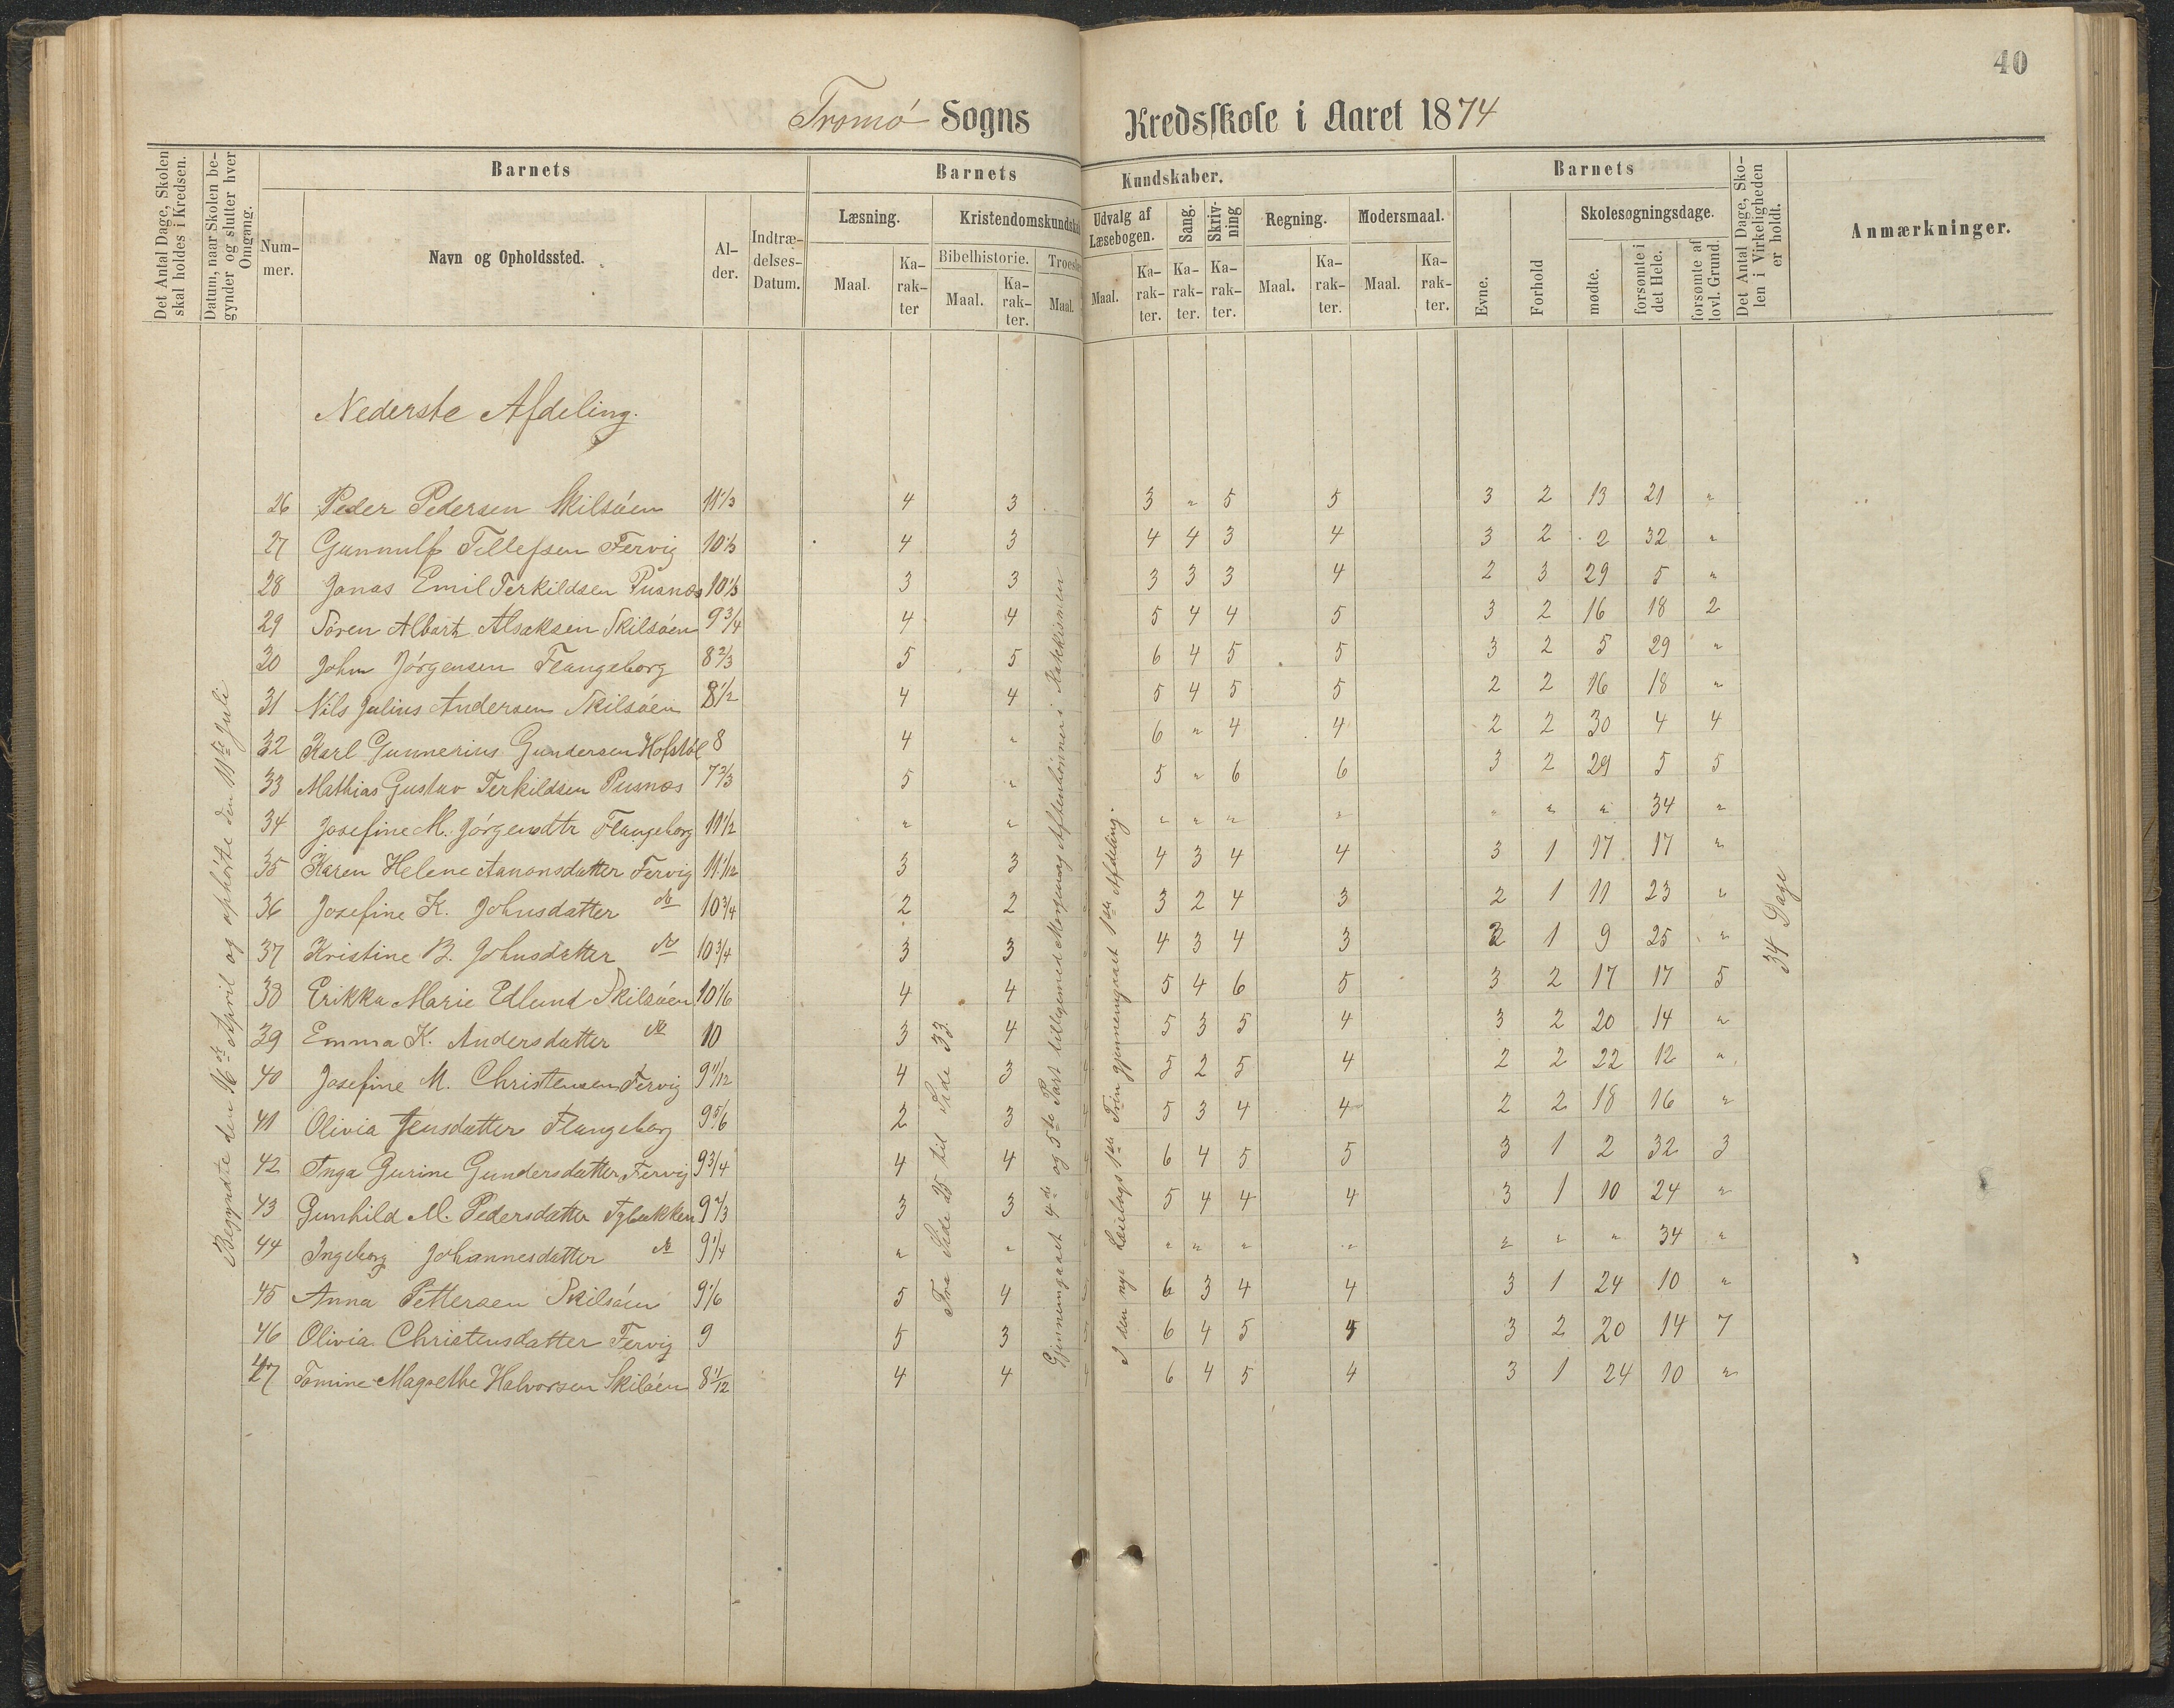 40
Tromø Sogns Kredsskole i Aaret 1874
Det Antal Dage, Skolen skal holdes i Kredsen.
Datum, naar Skolen begynder og slutter hver Omgang.
Barnets
Nummer.
Navn og Opholdssted.
Alder.
Indtrædelses-Datum.
Barnets Kundskaber.
Læsning.
Maal.
Karakter
Kristendomskundskab
Bibelhistorie.
Maal.
Karakter.
Troeslære
Maal.
Udvalg af Læsebogen.
Maal.
Karakter.
Sang.
Karakter.
Skrivning
Karakter.
Regning.
Maal.
Karakter.
Modersmaal.
Maal.
Karakter.
Barnets
Evne.
Forhold
Skolesøgningsdage.
mødte.
forsømte i det Hele.
forsømte af lovl. Grund.
Det Antal Dage, Skolen i Virkeligheden er holdt.
Anmærkninger.
Nederste Afdeling.
Begyndte den 16de April og ophørte den 11te Juli
26 Peder Pedersen Skilsøen 11 1/3 4 3 3 " 5 5 3 2 13 21 "
27 Gunnulf Tellefsen Færvig 10 1/3 4 3 4 4 3 4 3 2 2 32 "
28 Jonas Emil Terkildsen Pusnæs 10 1/3 3 3 3 3 3 4 2 3 29 5 "
29 Sören Albart Alsaksen Skilsøen 9 3/4 4 4 5 4 4 5 3 2 16 18 2
30 John Jörgensen Flangeborg 8 2/3 5 5 6 4 5 5 3 2 5 29 "
31 Nils Julius Andersen Skilsøen 8 1/2 4 4 5 4 5 5 2 2 16 18 "
32 Karl Gunnerius Gundersen Hofstøl 8 4 " 6 " 4 4 2 2 30 4 4
33 Mathias Gustav Terkildsen Pusnæs 7 2/3 5 " 5 " 6 6 3 2 29 5 5
34 Josefine M. Jörgensdtr Flangeborg 11 1/2 " " " " " " " " " 34 "
35 Karen Helene Aanonsdatter Færvig 11 1/12 3 3 4 3 4 4 3 1 17 17 "
36 Josefine K. Johnsdatter do 10 3/4 2 2 3 2 4 3 2 1 11 23 "
37 Kristine B. Johnsdatter do 10 3/4 3 3 4 3 4 3 2 1 9 25 "
38 Erikka Marie Edlund Skilsøen 10 1/6 4 4 5 4 6 5 3 2 17 17 5
39 Emma K. Andersdatter do 10 3 4 5 3 5 4 3 2 20 14 "
40 Josefine M. Christensen Færvig 9 11/12 4 3 5 2 5 4 2 2 22 12 "
41 Olivia Jensdatter Flangeborg 9 5/6 2 3 5 3 4 4 2 2 18 16 "
42 Inga Gurine Gundersdatter Færvig 9 3/4 4 4 6 4 5 5 3 1 2 32 3
43 Gunhild M. Pedersdatter Tybakken 9 2/3 3 3 5 4 4 4 3 1 10 24 "
44 Ingeborg Johannesdatter do 9 1/4 " " " " " " " " " 34 "
45 Anna Pettersen Skilsøen 9 1/6 5 4 6 3 4 4 3 1 24 10 "
46 Olivia Christensdatter Færvig 9 5 3 6 4 5 5 3 2 20 14 7
47 Tomine Magrethe Halvorsen Skilsøen 8 1/12 4 4 6 4 5 4 3 1 24 10 "
Fra Side 25 til Side 33.
Gjennemgaaet 4de og 5te Part tilligemed Morgen og Aftenbønner i Katekismen
I den nye Læsebogs 1ste Trin gjennemgaaet 1ste Afdeling.
34 Dage